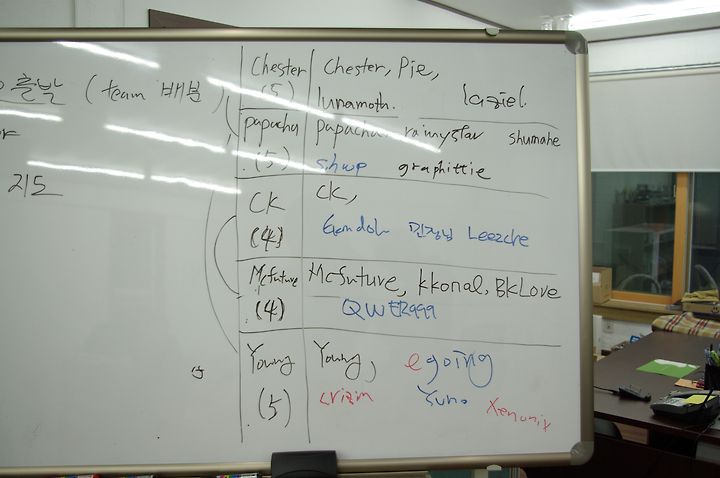 출발 (team 배분)
지도
Chester Chester, Pie,
(5) lunamoth. laziel.
papacha papacha rainystar shumahe
(5) graphittie
CK CK,
(4) Gendoh 민장님 Leezche
Mcfuture Mcfuture, kkonal, BKLove
(4) QWER999
Young Young, egoing
(5) crizin Yuno Xenunix